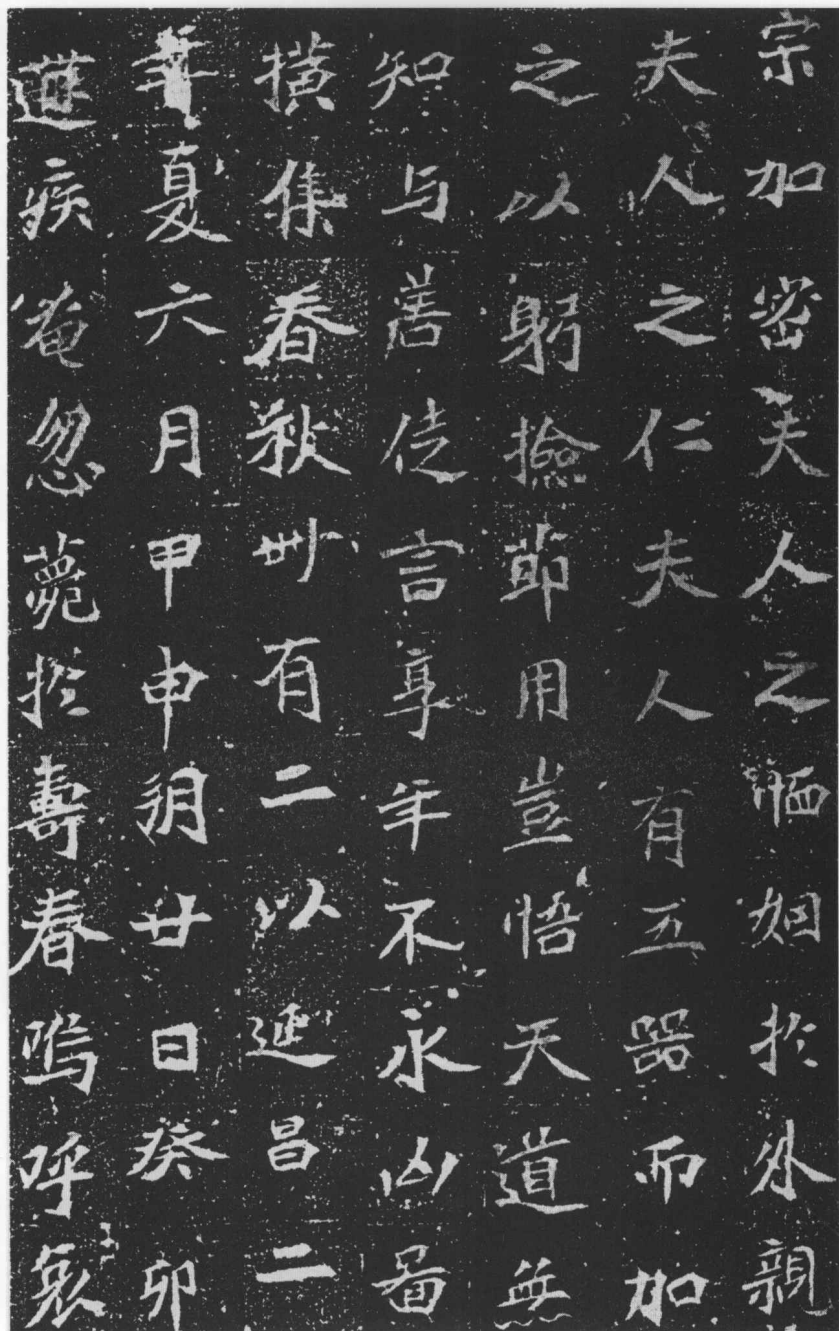 宗加密夫人之恤姻於外親
夫人之仁夫人有五器而加
之以躬撿節用豈悟天道無
知与善徒言享年不永凶啚
撗集春秋卌有二以延昌二
年夏六月甲申朔廿日癸卯
遘疾奄忽薨於壽春嗚呼哀